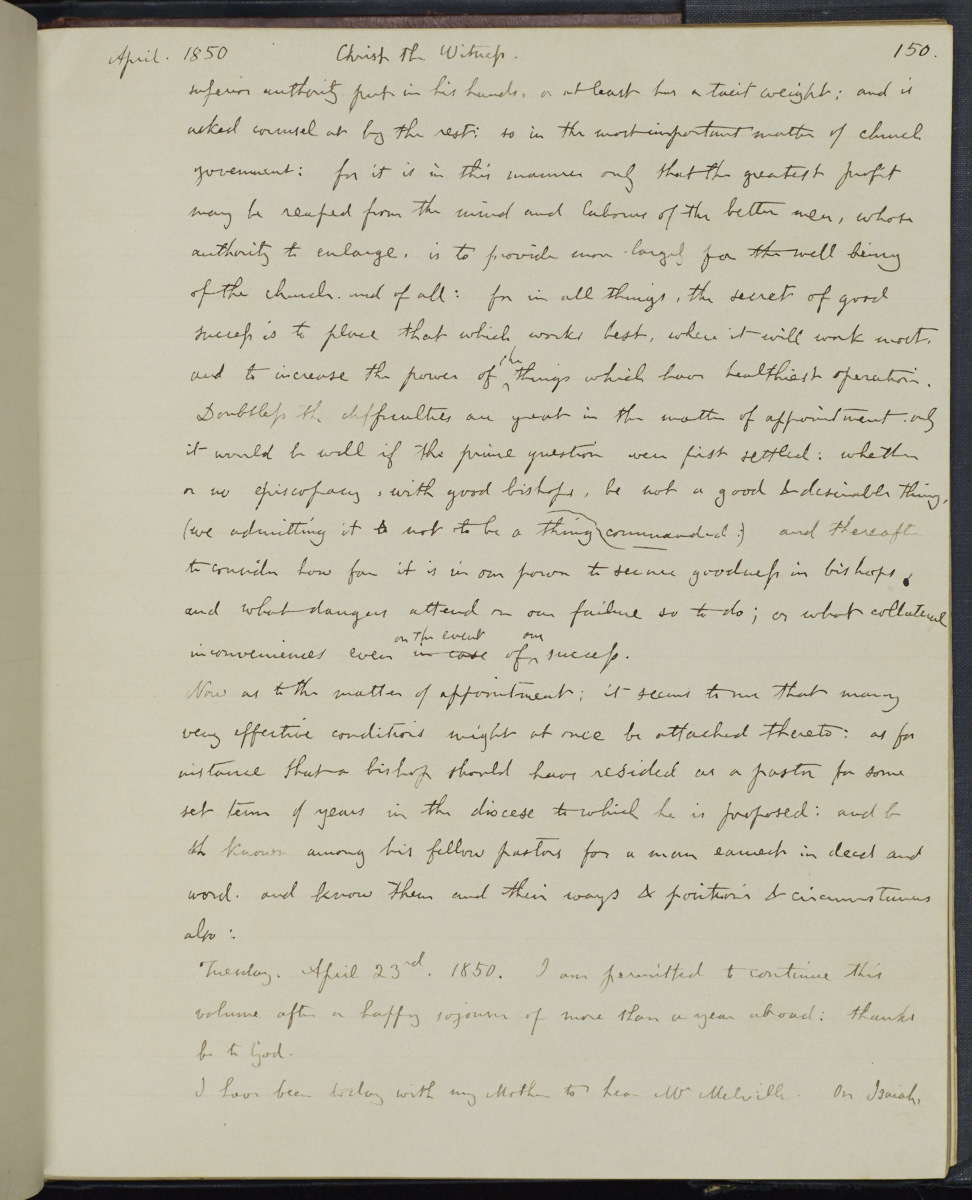 April. 1850 Christ the Witness. 150.
superior authority put in his hands, or at least has a tacit weight; and is
asked counsel at by the rest: so in the most important matter of church
government: for it is in this manner only that the greatest profit
may be reaped from the mind and labours of the better men, whose
authority to enlarge, is to provide more largely for the well being
of the church. and of all: for in all things, the secret of good
success is to place that which works best, where it will work most,
and to increase the power of the things which have healthiest operation.
Doubtless the difficulties are great in the matter of appointment. only
it would be well if the prime question were first settled: whether
or no episcopacy, with good bishops, be not a good & desirable thing,
(we admitting it to not to be a thing commanded:) and thereafter
to consider how far it is in our power to secure goodness in bishops,
and what dangers attend on our failure so to do; or what collateral
inconveniences even in case on the event of our success.
Now as to the matter of appointment; it seems to me that many
very effective conditions might at once be attached thereto: as for
instance that a bishop should have resided as a pastor for some
set term of years in the diocese to which he is proposed: and be
known among his fellow pastors for a man earnest in deed and
word. and know them and their ways & positions & circumstances
also:
Tuesday. April 23rd. 1850. I am permitted to continue this
volume after a happy sojourn of more than a year abroad: thanks
be to God.
I have been today with my Mother to hear Mr Melville. On Isaiah,